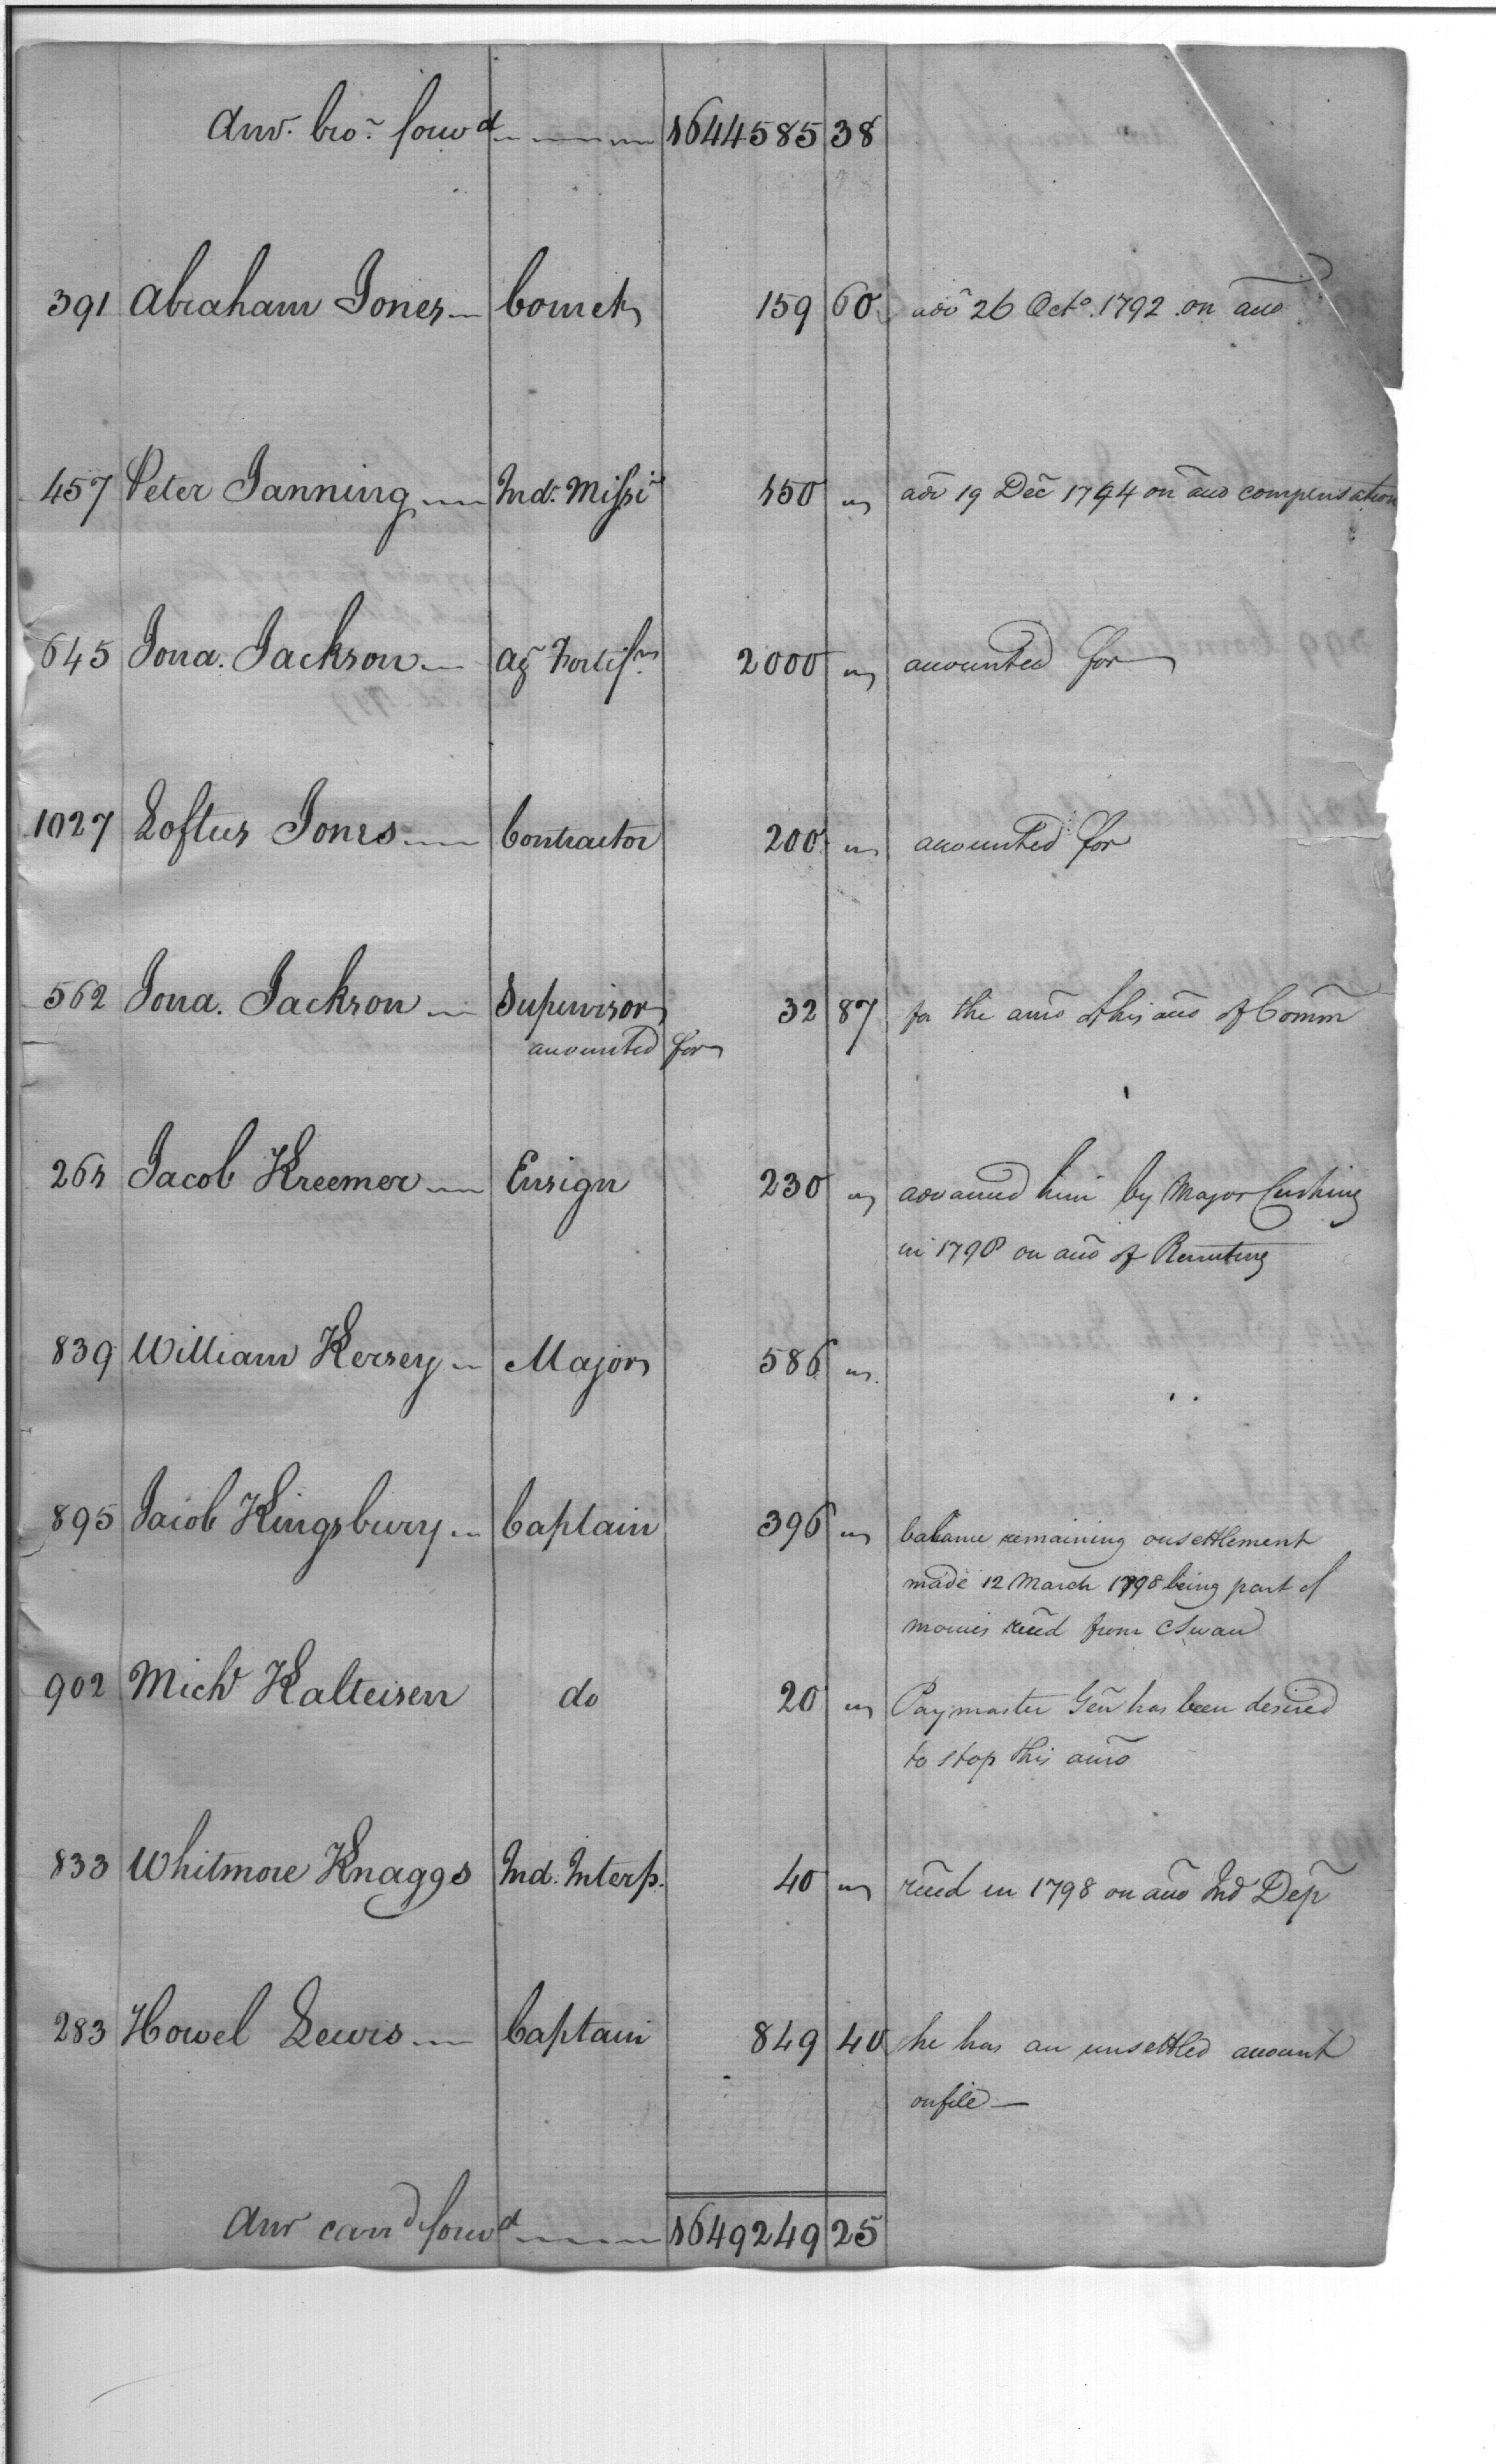 Amt. bro.t forwd 1644585 38
391 Abraham Jones Cornet 159 60 adv 26 Octo. 1792 on acco
457 Peter Janning Ind. Missi 150 adv 19 Dec 1794 on acco compensation
645 Jona. Jackson Ag Fortifns 2000 accounted for
1027 Loftus Jones Contractor 200 accounted for
562 Jona. Jackson Supervisor 32 87 for the amo of his acco of Comm
accounted for
261 Jacob Kreemer Ensign 230 advanced him by Major Cushing
in 1798 on acco of Recruiting
839 William Kersey Major 586
895 Jacob Kingsbury Captain 396 balance remaining on settlement
made 12 March 1798 being part of
monies recd from C Swan
902 Michl Kalteisen do 20 Paymaster Gen has been desired
to stop this amo
833 Whitmore Knaggs Ind. Interp. 40 recd in 1798 on acco Ind Dep
283 Howel Lewis Captain 849 40 he has an unsettled account
on file
Amt carrd forwd 1649249 25